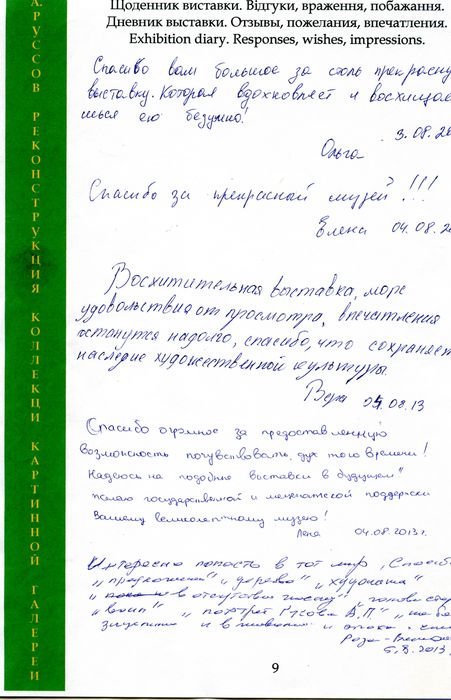 А. РУССОВ РЕКОНСТРУКЦИЯ КОЛЛЕКЦИ КАРТИННОЙ ГАЛЕРЕИ
Щоденник виставки. Відгуки, враження, побажання.
Дневник выставки. Отзывы, пожелания, впечатления.
Exhibition diary. Responses, wishes, impressions.
Спасибо вам большое за столь прекрасну
выставку. Которая вдохновляет и восхищае
шься ею безумно!
3.08.20
Ольга
Спасибо за прекрасный музей!!!
Елена 04.08.20
Восхитительная выставка, море
удовольствия от просмотра, впечатления
останутся надолго, спасибо, что сохраняет
наследие художественной культуры
Вера 04.08.13
Спасибо огромное за предоставленную
возможность почувствовать дух того времени!
Надеюсь на подобные выставки в будущем
желаю государственной и меценатской поддержки
Вашему великолепному музею!
Лена 04.08.2013г.
Интересно попасть в тот мир, Спасибо
"дерево" "художник"
в отсутствии голова стар
"портрет В.П."
и в живописи и эпоха
Роза
5.8.2013
9